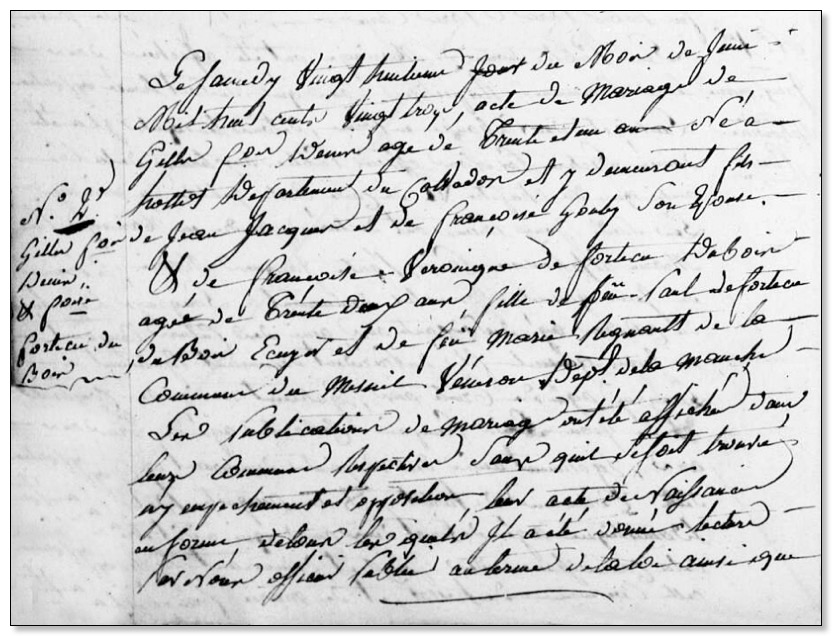 Le samedy vingt huitieme jour du mois de juin
Mil huit cents vingt trois, acte de Mariage de
Gille age de trente et un an Né à
hottot Departement du Calvados et y demeurant fils
de Jean Jacques et de Françoise son Epouse.
N.º 2
Gille
&
Bois
& de Françoise Veronique de fortecu Du bois
agée de trente deux ans fille de feu Paul de fortecu
du Bois Ecuyer et de feu Marie Regnault de la
Commune du Mesnil Dept. de la Manche
Les publications de Mariage ont été affiché dans
leurs Communes Respectives sans qu'il se soit trouvé
ny empechement et opposition leur acte de Naissance
en forme de tous les quels Il a été donné lecture
par Nous officier public au terme de la loi ainsi que